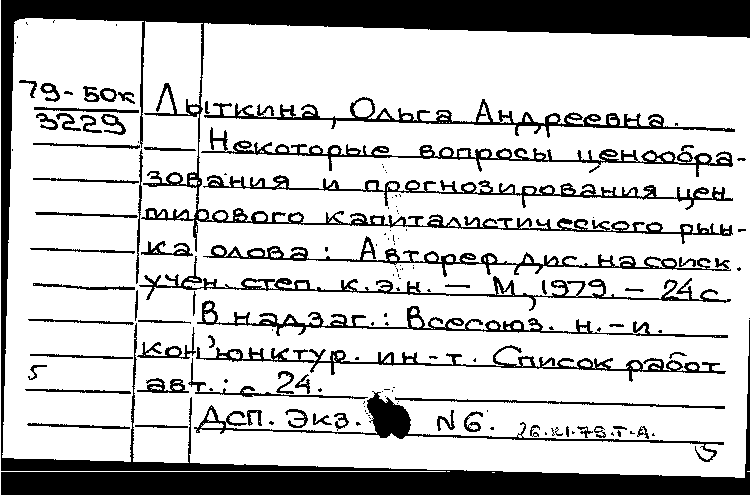 79-50к
3229
Лыткина, Ольга Андреевна.
Некоторые вопросы ценообра-
зования и прогнозирования цен
мирового капиталистического рын-
ка олова: Автореф. дис. на соиск.
учен. степ. к.э.н. — М., 1979. — 24 с.
В надзаг.: Всесоюз. н.-и.
кон'юнктур. ин-т. Список работ
авт.: с. 24.
5
ДСП. Экз. N6. 26.XI.79.Т-А.